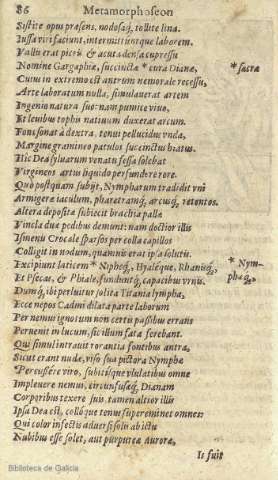 86 Metamorphoseon
Sistite opus præsens, nodosaq́; tollite lina.
Iussa viri faciunt, intermittuntque laborem.
Vallis erat piceis & acuta densa cupressu
Nomine Gargaphie, succinctæ * cura Dianæ, * sacra
Cuius in extremo est antrum nemorale recessu,
Arte laboratum nulla, simulauerat artem
Ingenio natura suo: nam pumice viuo,
Et leuibus tophis natiuum duxerat arcum.
Fons sonat à dextra, tenui pellucidus vnda,
Margine gramineo patulos succinctus hiatus.
Hic Dea syluarum venatu fessa solebat
Virgineos artus liquido perfundere rore.
Quo postquam subijt, Nympharum tradidit vni
Armigeræ iaculum, pharetramq́;, arcusq́; retentos.
Altera depositæ subiecit brachia pallæ
Vincla duæ pedibus demunt: nam doctior illis
Ismenis Crocale sparsos per colla capillos
Colligit in nodum, quamuis erat ipsa solutis.
Excipiunt laticem * Nipheq́;, Hyaleque, Rhanisq́; * Nym-
Et Psecas, & Phiale, funduntq́; capacibus vrnis. pheq́;
Dumq́; ibi perluitur solita Titania lympha,
Ecce nepos Cadmi dilata parte laborum
Per nemus ignotum non certis passibus errans
Peruenit in lucum, sic illum fata ferebant.
Qui simul intrauit rorantia fontibus antra,
Sicut erant nudæ, viso sua pectora Nymphæ
Percussêre viro, subitisque vlulatibus omne
Impleuere nemus, circunfusæq́; Dianam
Corporibus texere suis. tamen altior illis
Ipsa Dea est, colloque tenus supereminet omnes:
Qui color infectis aduersi solis ab ictu
Nubibus esse solet, aut purpureæ Auroræ,
Is fuit
Biblioteca de Galicia